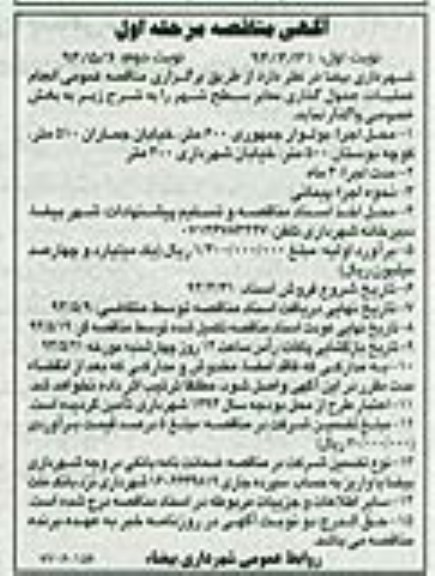 آگهی مناقصه مرحله اول
نوبت اول: نوبت دوم: ۹۳/۵/۶
شهرداری بیضا در نظر دارد از طریق برگزاری مناقصه عمومی انجام
عملیات جدول گذاری معابر سطح شهر را به شرح زیر به بخش
خصوصی واگذار نماید.
۱- محل اجرا: بولوار جمهوری ۶۰۰ متر، خیابان چمران ۵۰۰ متر،
کوچه بوستان ۵۰۰ متر، خیابان شهرداری ۳۰۰ متر
۲- مدت اجرا: ۳ ماه
۳- نحوه اجرا: پیمانی
۴- محل اخذ اسناد مناقصه و تسلیم پیشنهادات: شهر بیضا،
دبیرخانه شهرداری تلفن:
۵- برآورد اولیه: مبلغ ۱/۴۰۰/۰۰۰/۰۰۰ ریال (یک میلیارد و چهارصد
میلیون ریال)
۶- تاریخ شروع فروش اسناد:
۷- تاریخ نهایی دریافت اسناد مناقصه توسط متقاضی: ۹۳/۵/۹
۸- تاریخ نهایی عودت اسناد مناقصه تکمیل شده توسط مناقصه گر: ۹۳/۵/۱۹
۹- تاریخ بازگشایی پاکات: رأس ساعت ۱۳ روز چهارشنبه مورخه
۱۰- به مدارکی که فاقد امضا، مخدوش و مدارکی که بعد از انقضاء
مدت مقرر در این آگهی واصل شود، مطلقا ترتیب اثر داده نخواهد شد.
۱۱- اعتبار طرح از محل بودجه سال ۱۳۹۳ شهرداری تأمین گردیده است.
۱۲- مبلغ تضمین شرکت در مناقصه مبلغ ۵ درصد قیمت برآوردی
ریال)
۱۳- نوع تضمین شرکت در مناقصه ضمانت نامه بانکی در وجه شهرداری
بیضا یا واریز به حساب سپرده جاری شهرداری نزد بانک ملت
۱۴- سایر اطلاعات و جزییات مربوطه در اسناد مناقصه درج شده است.
۱۵- حق الدرج دو نوبت آگهی در روزنامه خبر به عهده برنده
مناقصه می باشد.
روابط عمومی شهرداری بیضاء